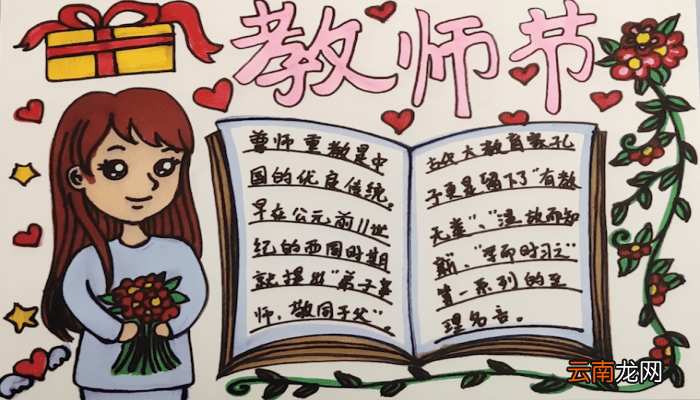 教师节
尊师重教是中
国的优良传统。
早在公元前11世
纪的西周时期
就提出“弟子事
师，敬同于父”。
古代大教育家孔
子更是留下了“有教
无类”、“温故而知
新”、“学而时习之”
等一系列的至
理名言。
云南龙网